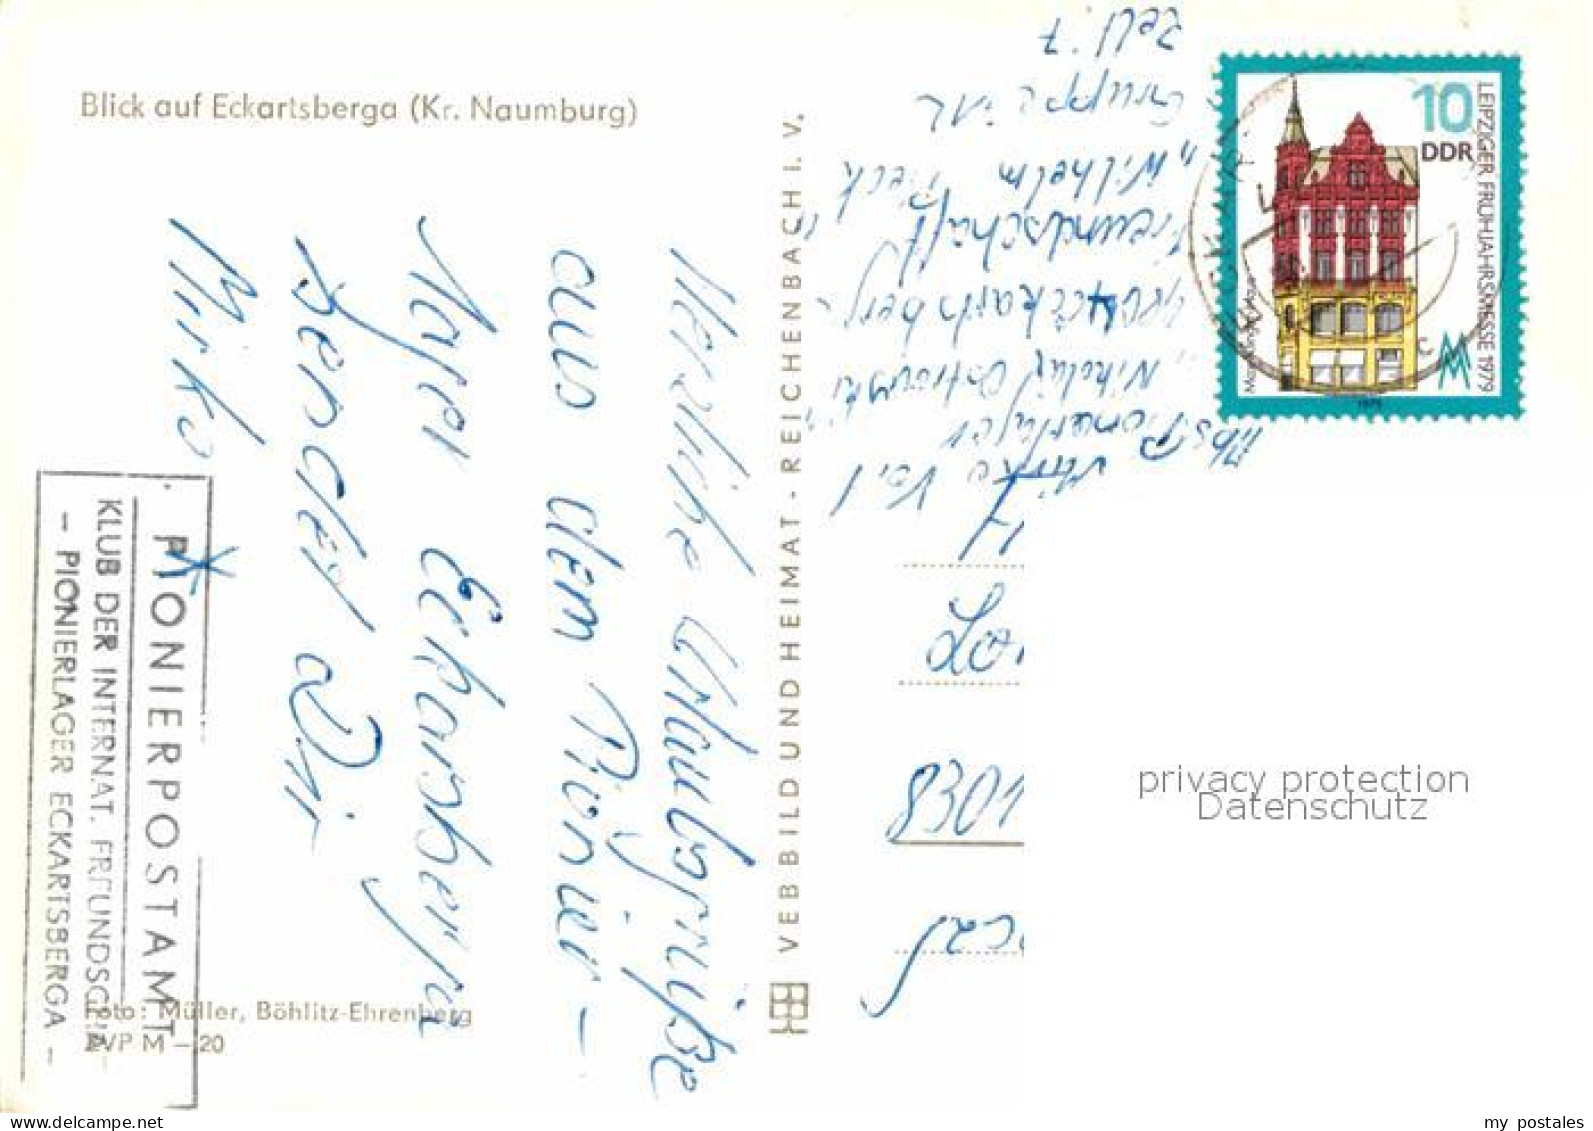 Blick auf Eckartsberga (Kr. Naumburg)
Herzliche Urlaubsgrüße
aus dem Pionier-
lager Eckartsberga
sendet dir
Mirko
PIONIERPOSTAMT
KLUB DER INTERNAT. FREUNDSCHAFT
- PIONIERLAGER ECKARTSBERGA -
Foto: Müller, Böhlitz-Ehrenberg
M - 20
VEB BILD UND HEIMAT - REICHENBACH I. V.
Abs. Mirko
Pionierlager
"Nikolai Ostrowski"
Eckartsberga
Freundschaft
"Wilhelm Pieck"
Gruppe 12
Zelt: 7
8301
10
DDR
LEIPZIGER FRÜHJAHRSMESSE 1979
1979
privacy protection
Datenschutz
my postales